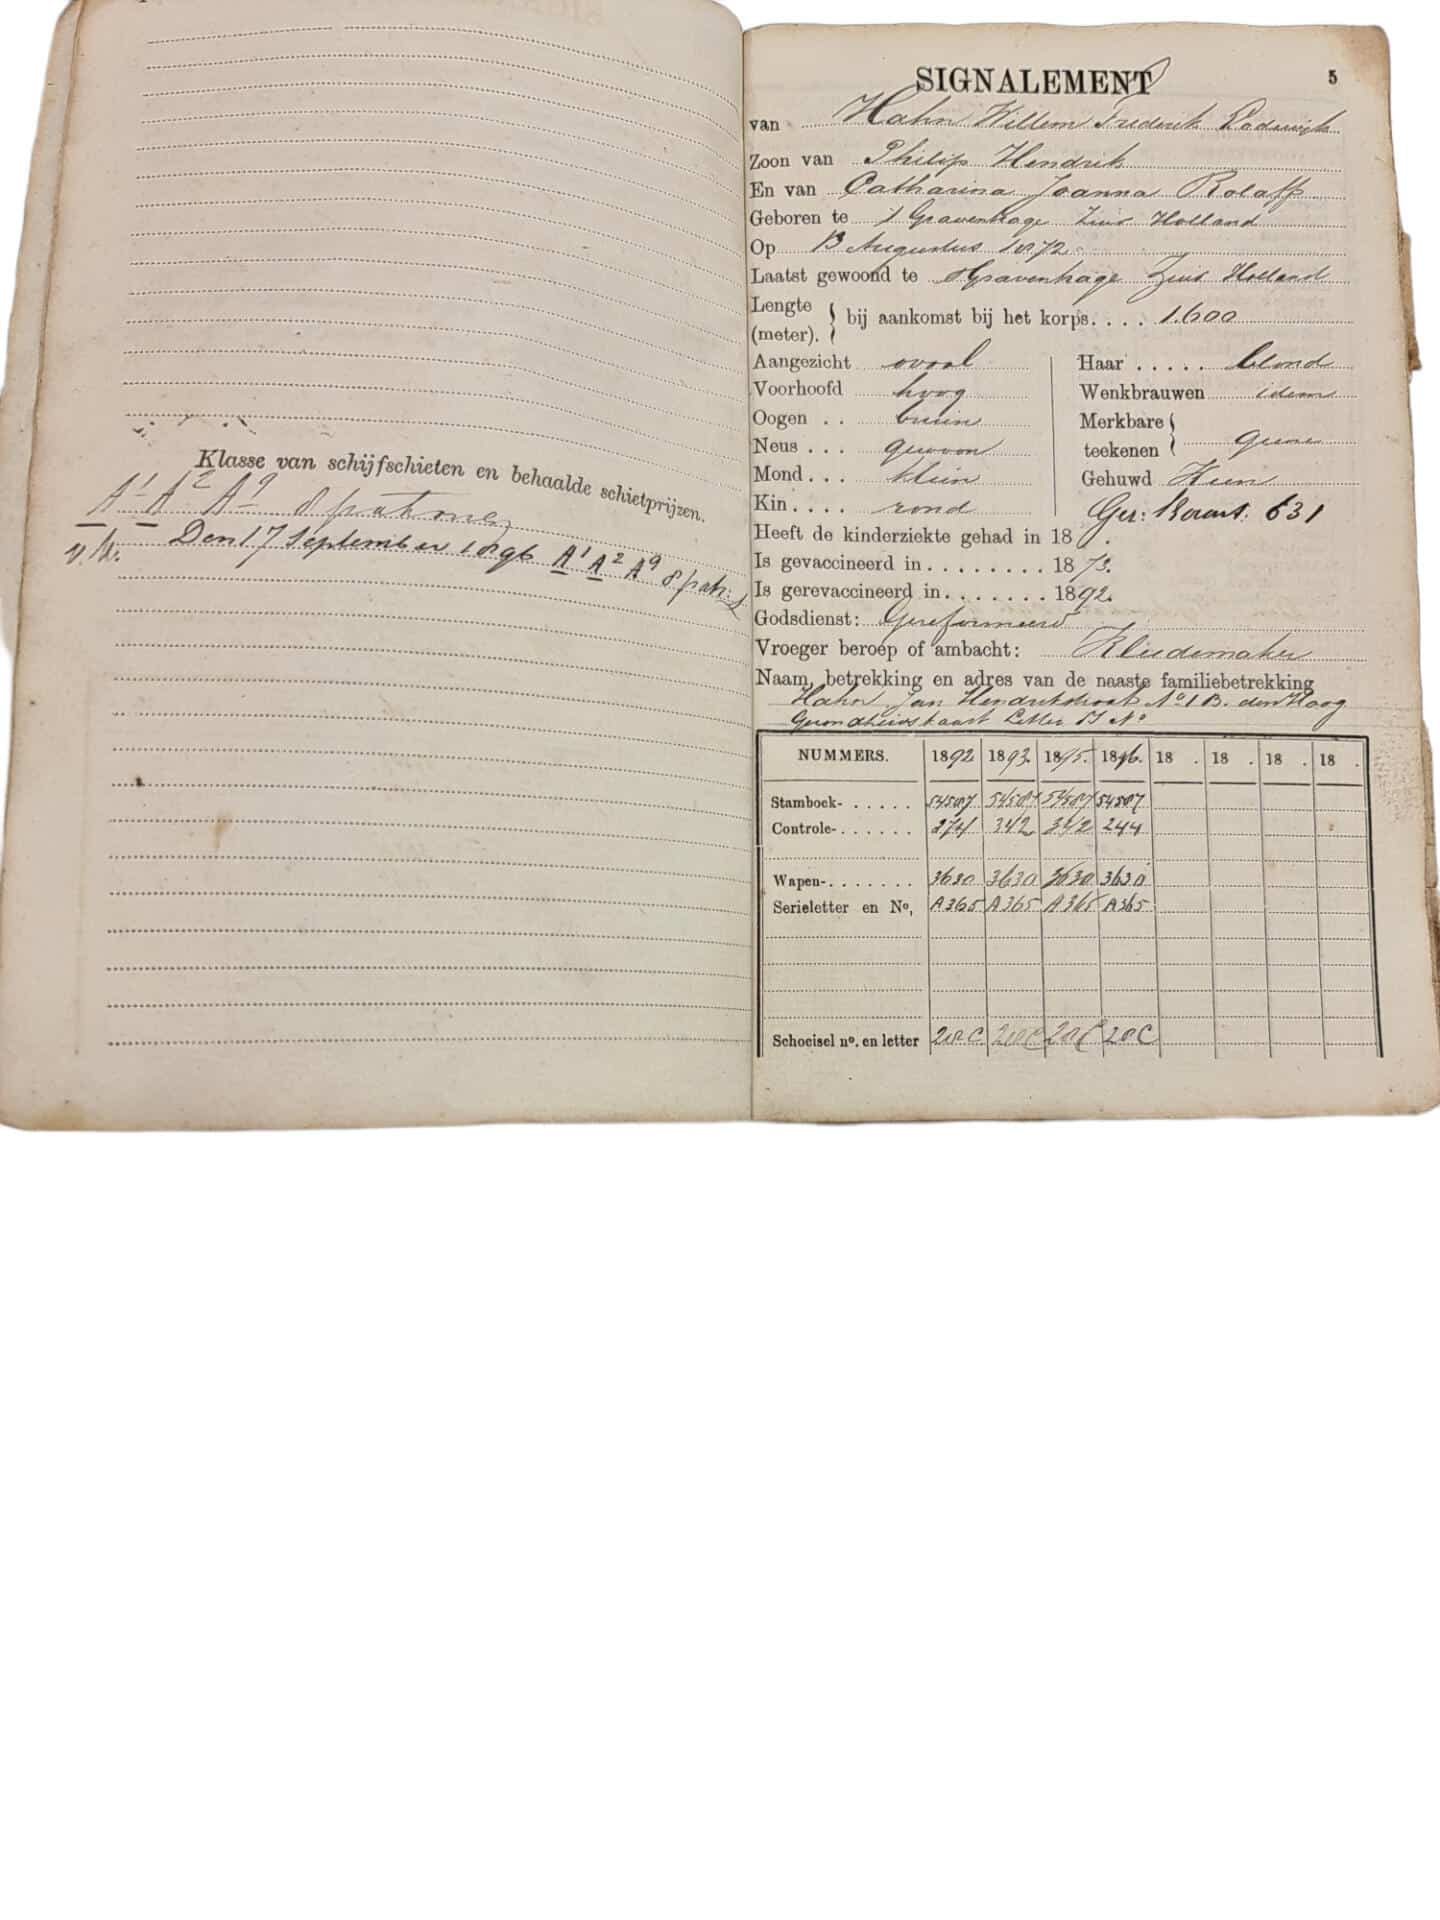 Klasse van schijfschieten en behaalde schietprijzen.
A¹ A² A⁹ 8 patronen
v./k. Den 17 September 1896 A¹ A² A⁹ 8 patr:
SIGNALEMENT 5
van Hahn Willem Frederik Lodewijk
Zoon van Philip Hendrik
En van Catharina Joanna Rolaff
Geboren te 's Gravenhage Zuid Holland
Op 13 Augustus 1872.
Laatst gewoond te 's Gravenhage Zuid Holland
Lengte (meter). } bij aankomst bij het korps.... 1.600
Aangezicht ovaal Haar ..... blond
Voorhoofd hoog Wenkbrauwen idem
Oogen .. bruin Merkbare
Neus ... gewoon teekenen } geene
Mond ... klein Gehuwd Neen
Kin .... rond Ger: 631
Heeft de kinderziekte gehad in 18 .
Is gevaccineerd in........ 1873.
Is gerevaccineerd in....... 1892.
Godsdienst: Gereformeerd
Vroeger beroep of ambacht: Kleedemaker
Naam, betrekking en adres van de naaste familiebetrekking
Hahn Jan Hendrikstraat No 1 B. den Haag
Gezondheidskaart Letter No
NUMMERS. 1892 1893. 1895. 1896. 18 . 18 . 18 . 18 .
Stamboek-..... 54587 54587 54587 54587
Controle-...... 274 342 342 244
Wapen-....... 3630 3630 3630 3630
Serieletter en No, A365 A365 A365 A365
Schoeisel no. en letter 28C 28C 28C 28C